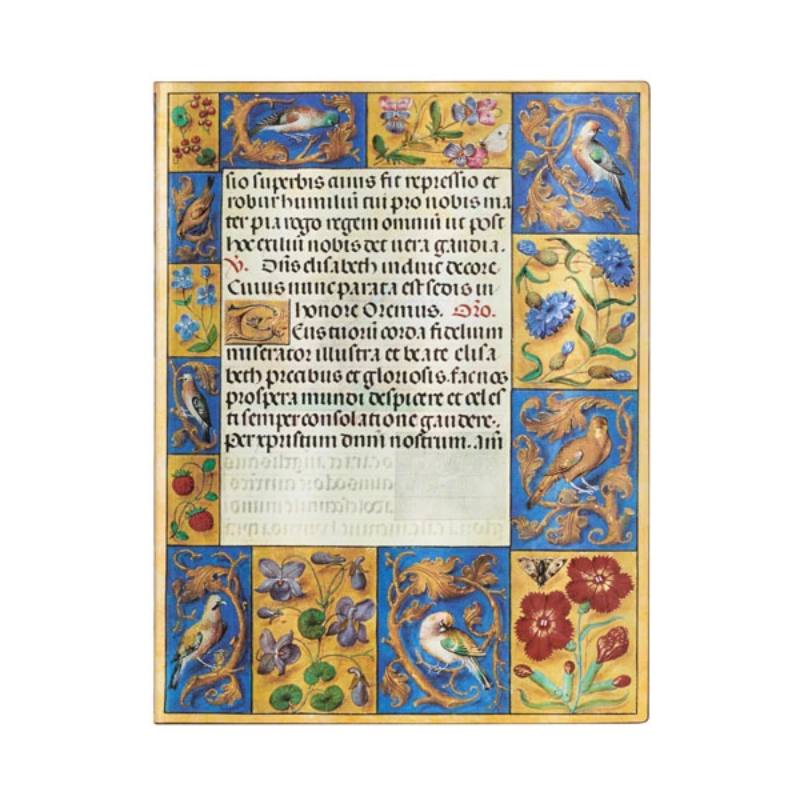 sio superbis cuius fit repressio et
robur humiliū tui pro nobis ma
ter pia rogo regem omniū ut post
hoc exiliū nobis det uera gaudia.
V. Dn̄s elisabeth induit decore.
Cuius nunc parata est sedis in
honore Oremus. Oro.
Eus tuorū corda fidelium
miserator illustra et beate elisa
beth precibus et gloriosis. fac nos
prospera mundi despicere et celes
ti semper consolatione gaudere.
per xpristum dnm̄ nostrum. am̄